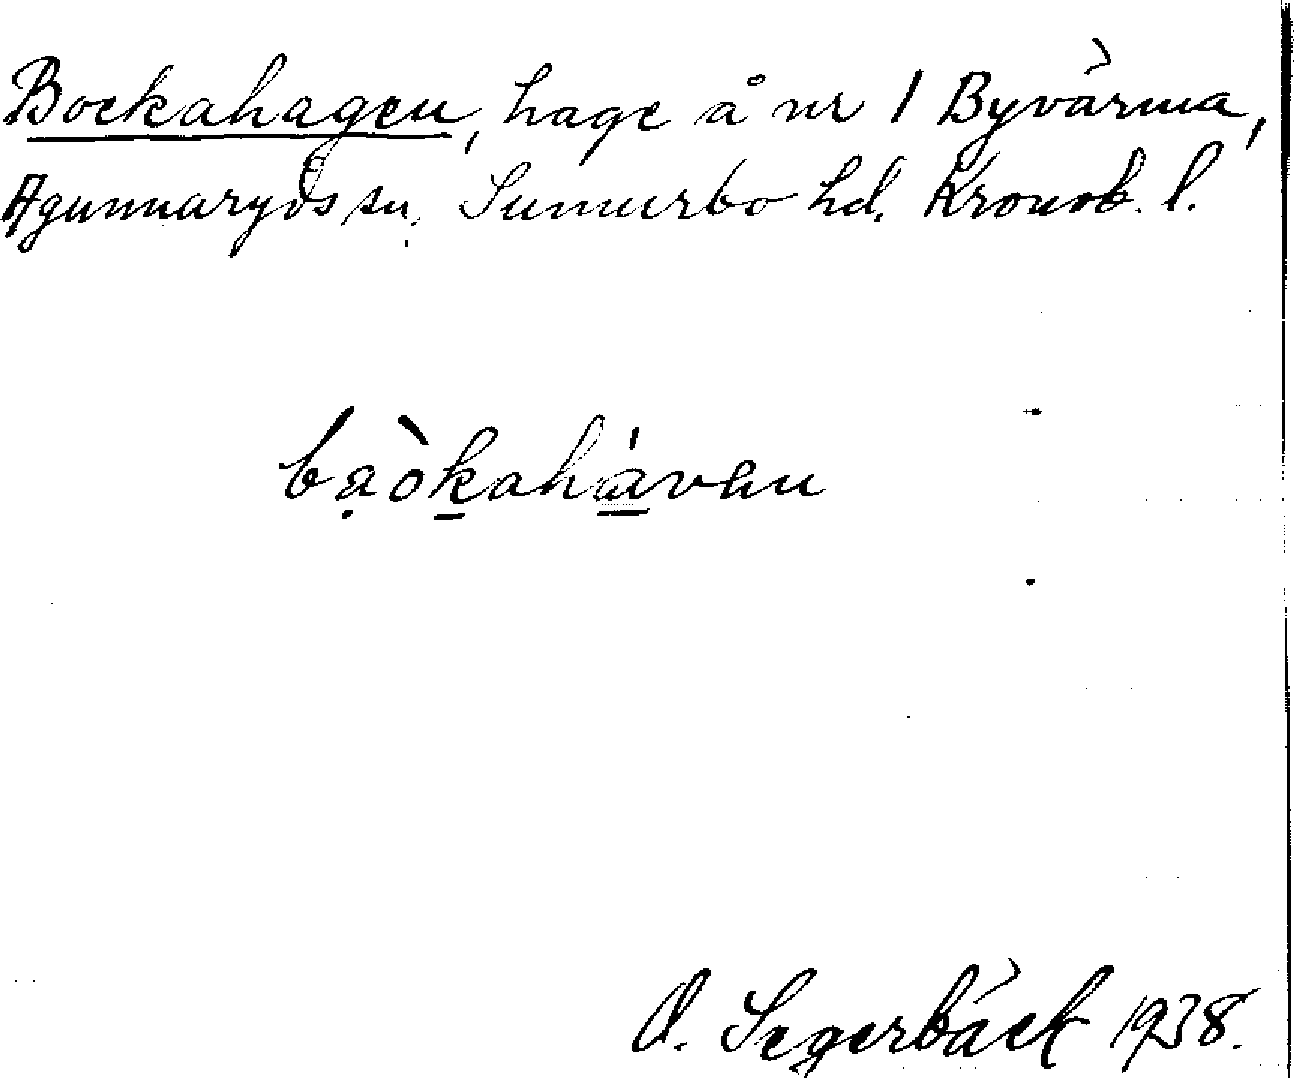 Bockahagen, hage å nr 1 Byvärma,
Agunnaryds sn. Sunnerbo hd. Kronob. l.
bạòk̲ahá̲vɘn
O. Segerbäck 1938.